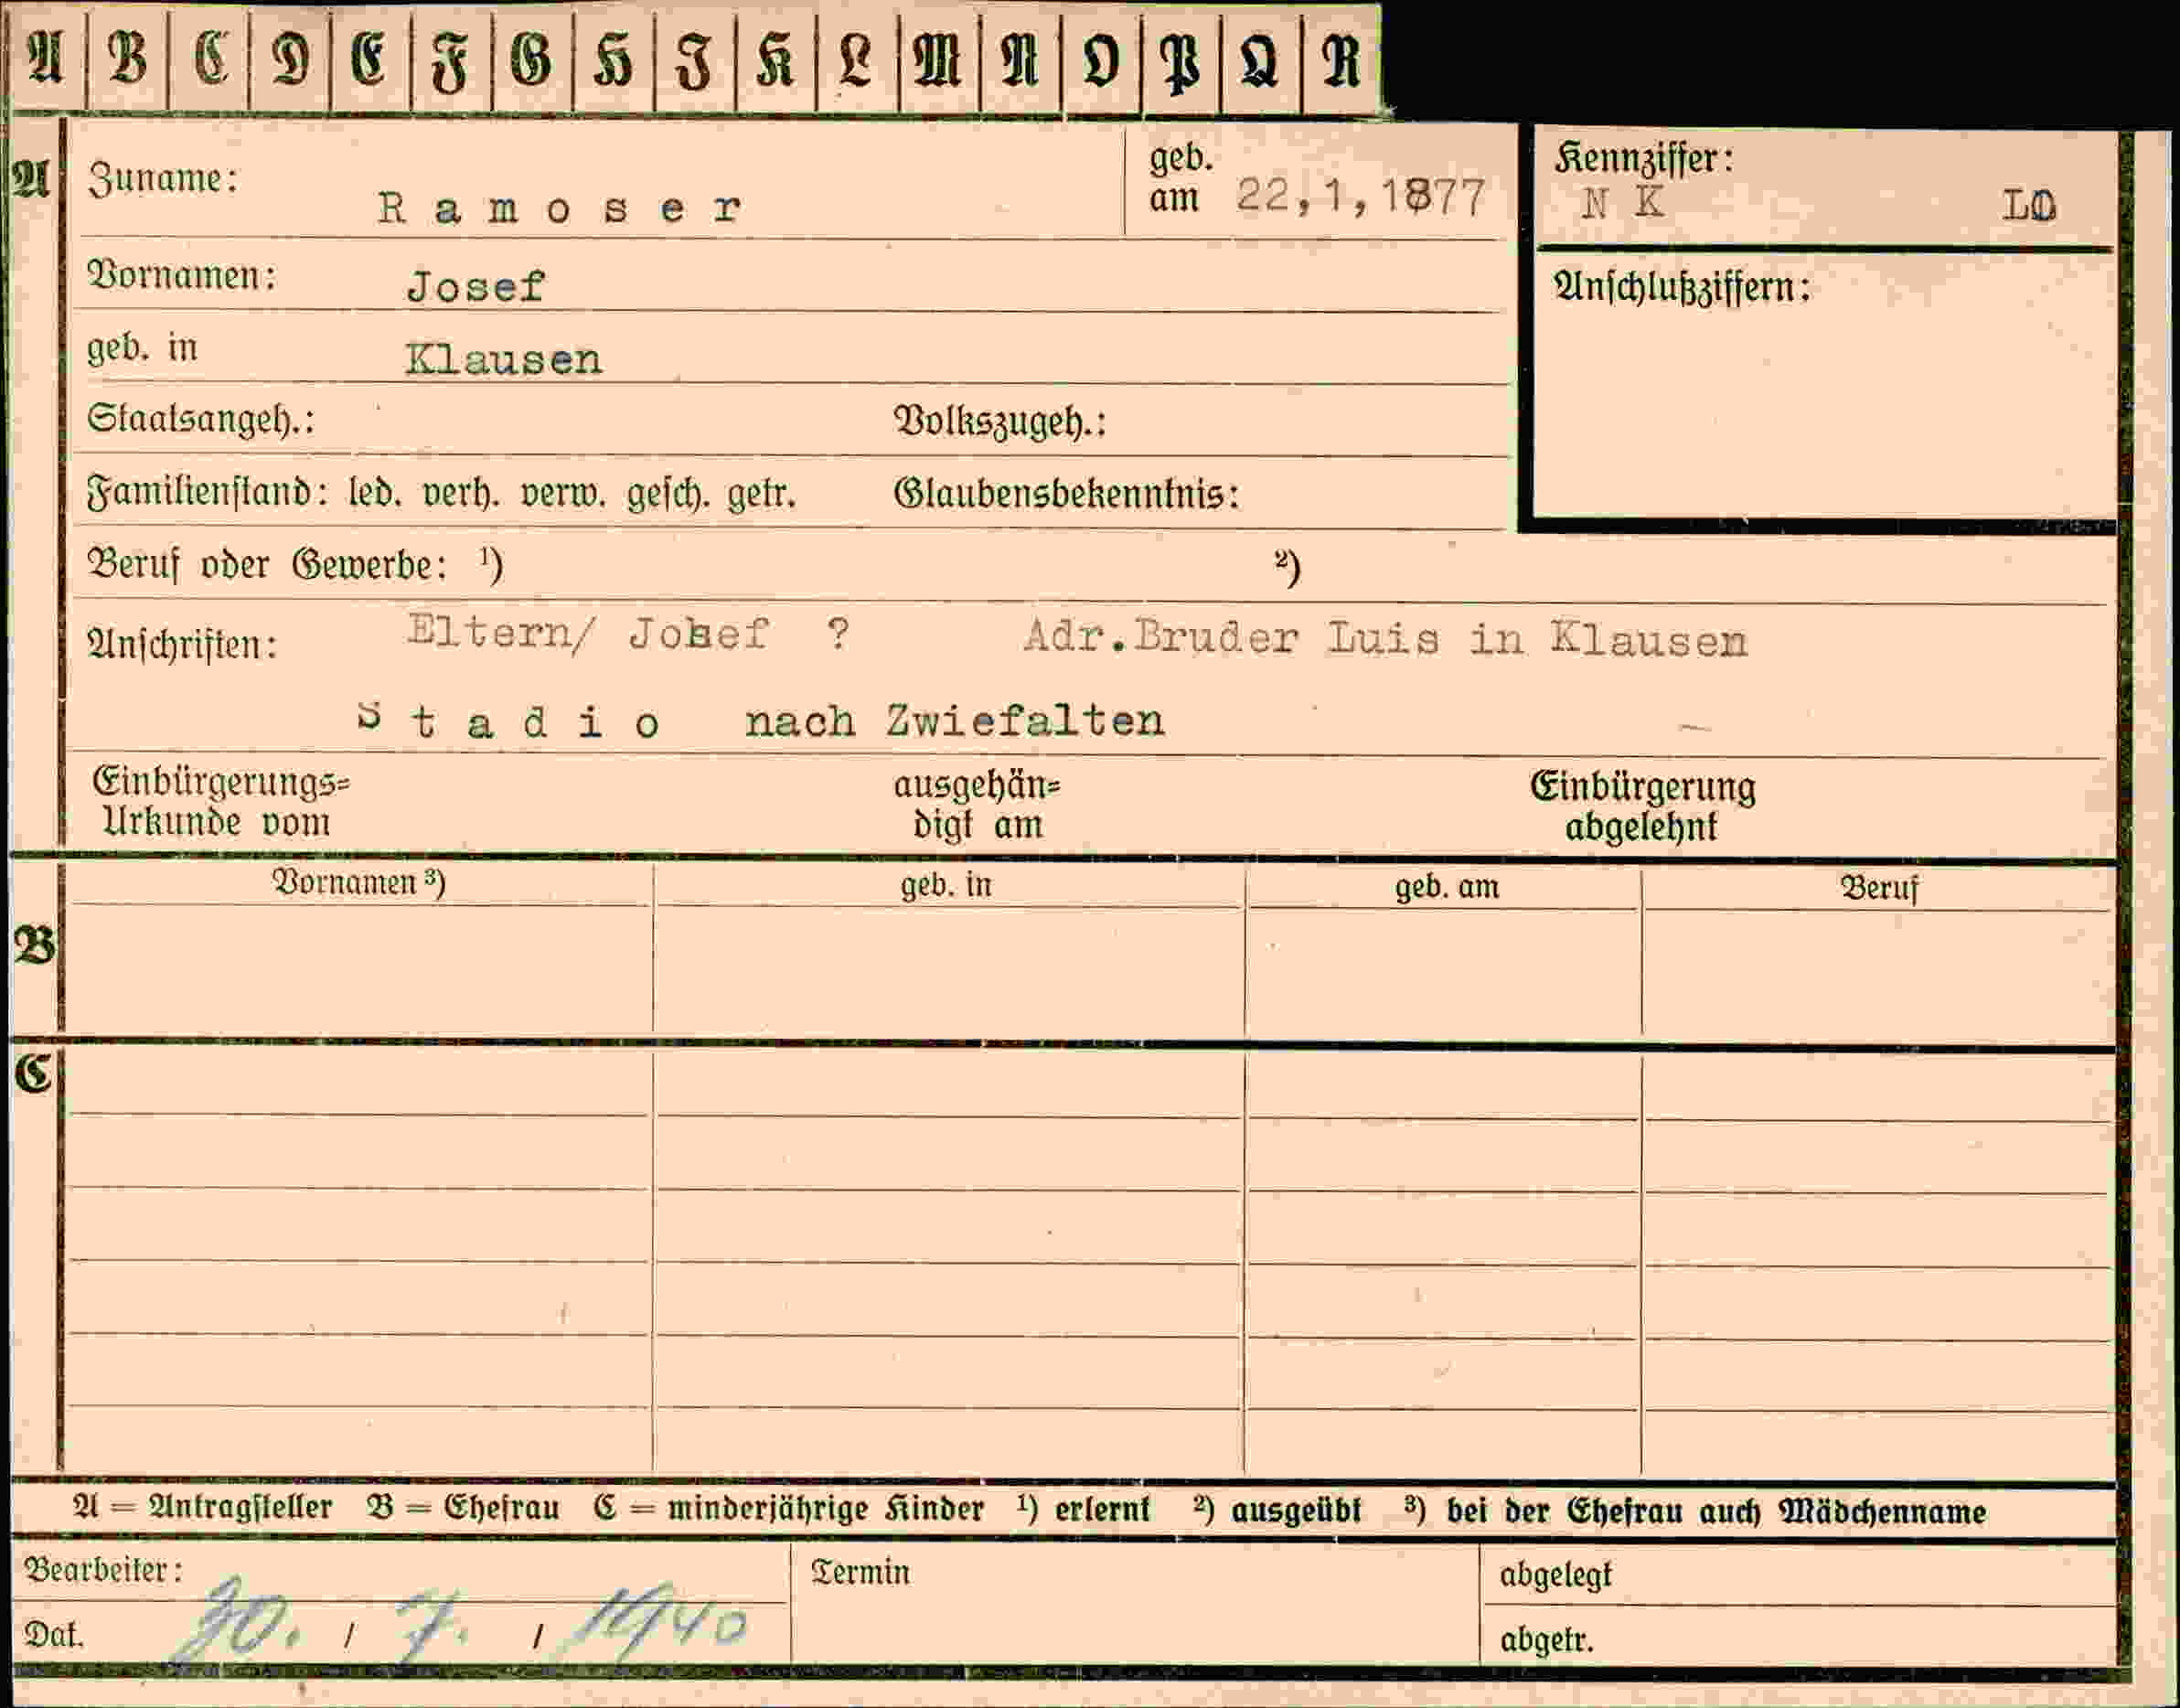 A B C D E F G H J K L M N O P Q R
A
Zuname: Ramoser
geb. am 22,1,1877
Kennziffer:
N K LO
Vornamen: Josef
Anschlußziffern:
geb. in Klausen
Staatsangeh.: Volkszugeh.:
Familienstand: led. verh. verw. gesch. getr. Glaubensbekenntnis:
Beruf oder Gewerbe: ¹) ²)
Anschriften: Eltern/ Josef ? Adr.Bruder Luis in Klausen
Stadio nach Zwiefalten
Einbürgerungs= ausgehän= Einbürgerung
Urkunde vom digt am abgelehnt
Vornamen ³) geb. in geb. am Beruf
B
C
A = Antragsteller B = Ehefrau C = minderjährige Kinder ¹) erlernt ²) ausgeübt ³) bei der Ehefrau auch Mädchenname
Bearbeiter: Termin abgelegt
Dat. 30. / 7. / 1940 abgetr.